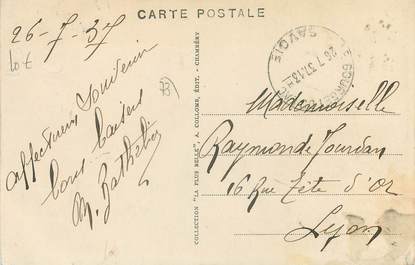 CARTE POSTALE
26-7-37
73
affectueux souvenir
bons baisers
COLLECTION "LA PLUS BELLE", A. COLLOMB, ÉDIT. - CHAMBÉRY
LE BOURGET
26.7.37.13H
SAVOIE
Mademoiselle
Raymonde Jourdan
16 Rue Tête d'Or
Lyon